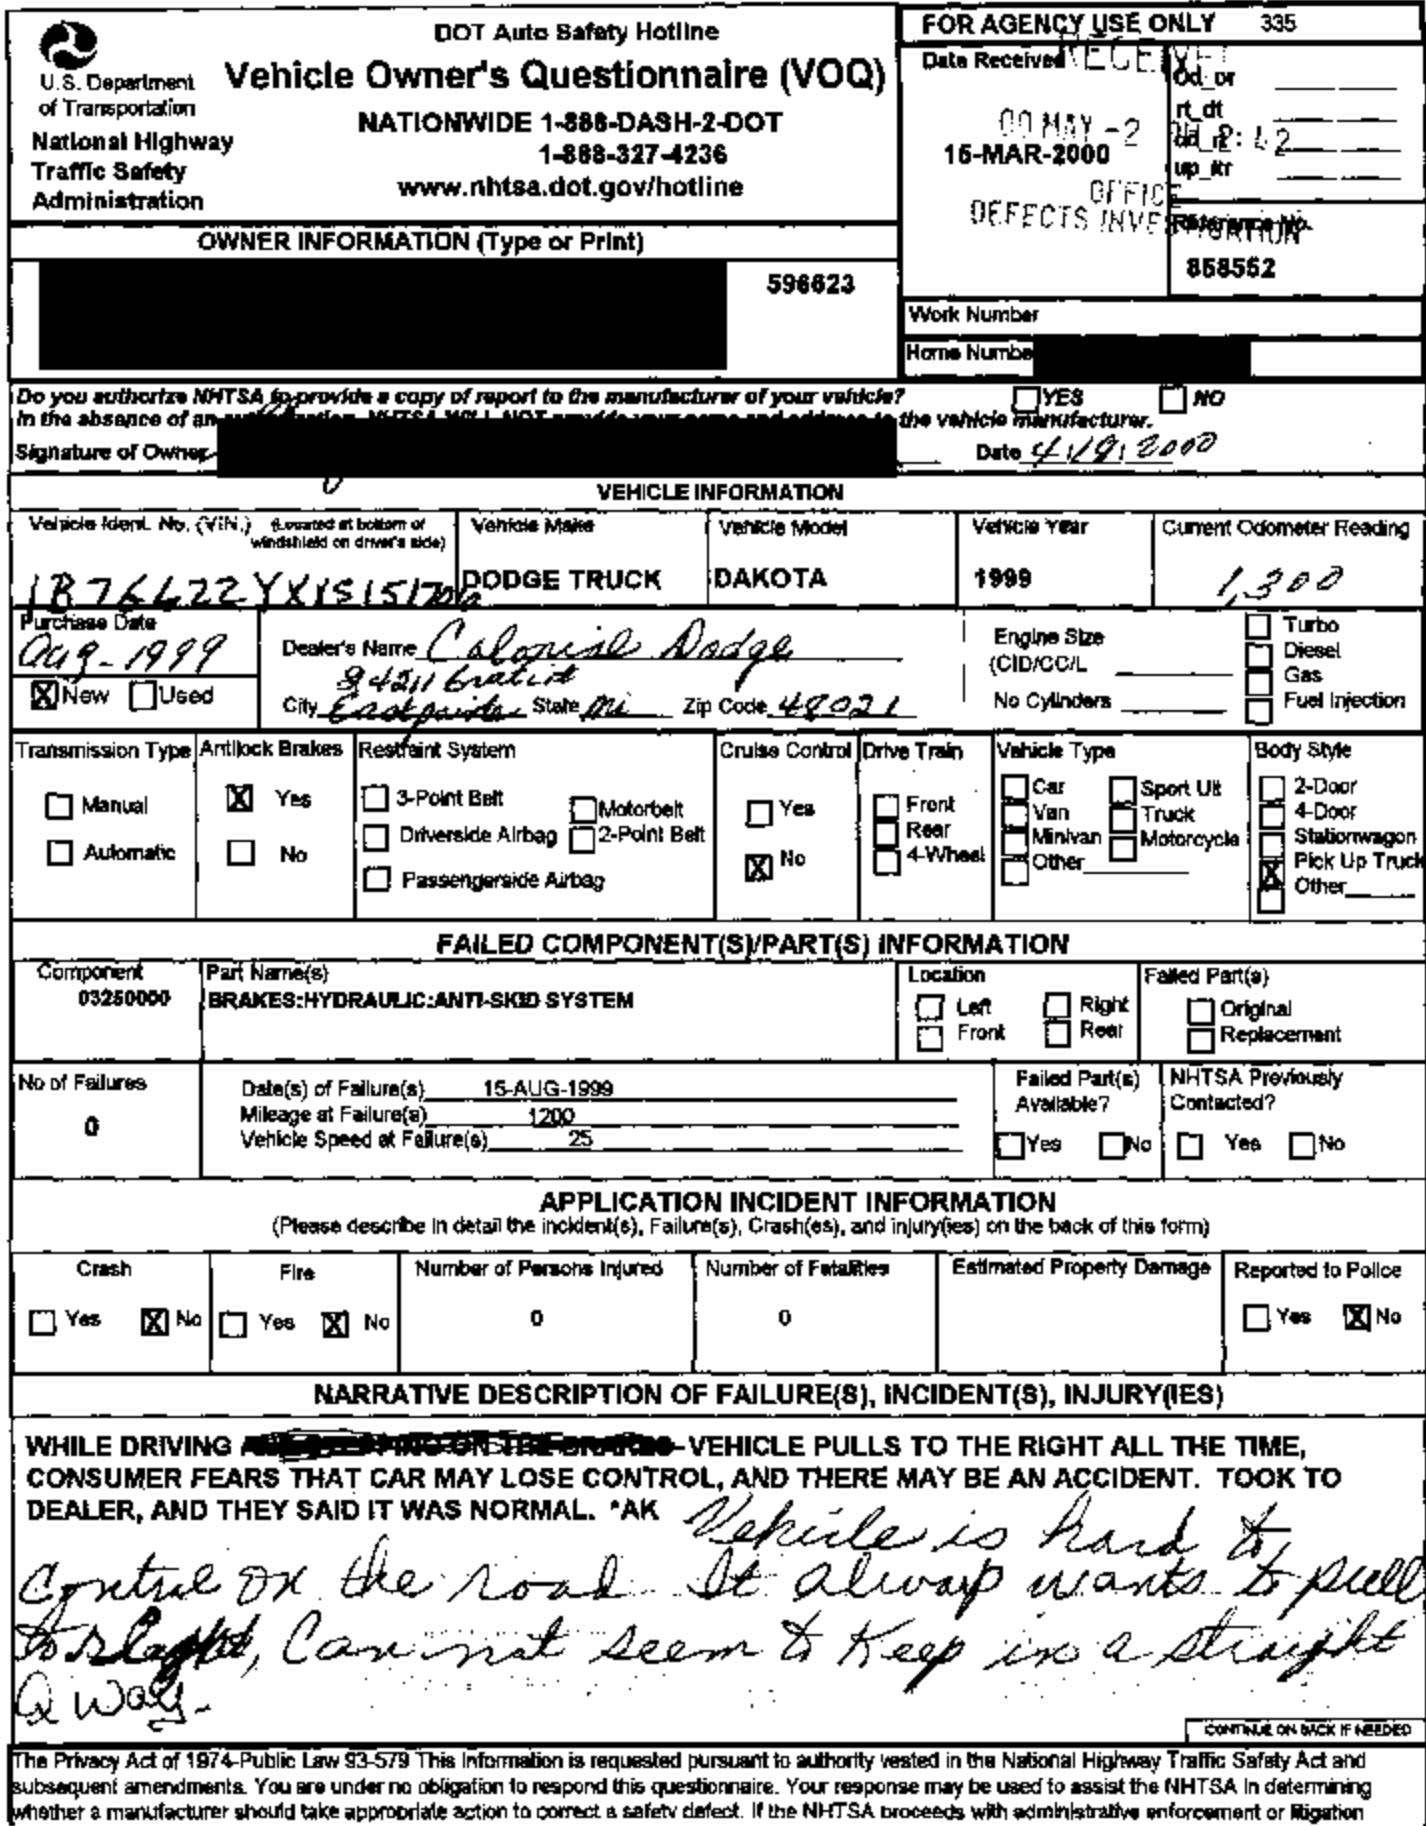 DOT Auto Safety Hotline
Vehicle Owner's Questionnaire (VOQ)
NATIONWIDE 1-888-DASH-2-DOT
1-888-327-4236
www.nhtsa.dot.gov/hotline
U.S. Department
of Transportation
National Highway
Traffic Safety
Administration
FOR AGENCY USE ONLY 335
Date Received
00 MAY -2
15-MAR-2000
OFFICE
DEFECTS INVESTIGATION
od_or
rt_dt
up_ltr
Reference No.
858552
OWNER INFORMATION (Type or Print)
596623
Work Number
Home Numbe
Do you authorize NHTSA to provide a copy of report to the manufacturer of your vehicle? YES NO
In the absence of an the vehicle manufacturer.
Signature of Owner Date 4/19/2000
VEHICLE INFORMATION
Vehicle Ident. No. (VIN.) (Located at bottom of windshield on driver's side)
Vehicle Make Vehicle Model Vehicle Year Current Odometer Reading
DODGE TRUCK DAKOTA 1999 1,300
Purchase Date
Aug-1999
X New Used
Dealer's Name Colonial Dodge
24211 Gratiot
City Eastpointe State Mi Zip Code 48021
Engine Size
(CID/CC/L
No Cylinders
Turbo
Diesel
Gas
Fuel Injection
Transmission Type Antilock Brakes Restraint System Cruise Control Drive Train Vehicle Type Body Style
Manual
Automatic
X Yes
No
3-Point Belt
Driverside Airbag
Passengerside Airbag
Motorbelt
2-Point Belt
Yes
X No
Front
Rear
4-Wheel
Car
Van
Minivan
Other
Sport Ult
Truck
Motorcycle
2-Door
4-Door
Stationwagon
X Pick Up Truck
Other
FAILED COMPONENT(S)/PART(S) INFORMATION
Component
03250000
Part Name(s)
BRAKES:HYDRAULIC:ANTI-SKID SYSTEM
Location
Left Right
Front Rear
Failed Part(s)
Original
Replacement
No of Failures
0
Date(s) of Failure(s) 15-AUG-1999
Mileage at Failure(s) 1200
Vehicle Speed at Failure(s) 25
Failed Part(s)
Available?
Yes No
NHTSA Previously
Contacted?
Yes No
APPLICATION INCIDENT INFORMATION
(Please describe in detail the incident(s), Failure(s), Crash(es), and injury(ies) on the back of this form)
Crash
Yes X No
Fire
Yes X No
Number of Persons Injured
0
Number of Fatalities
0
Estimated Property Damage
Reported to Police
Yes X No
NARRATIVE DESCRIPTION OF FAILURE(S), INCIDENT(S), INJURY(IES)
WHILE DRIVING -VEHICLE PULLS TO THE RIGHT ALL THE TIME,
CONSUMER FEARS THAT CAR MAY LOSE CONTROL, AND THERE MAY BE AN ACCIDENT. TOOK TO
DEALER, AND THEY SAID IT WAS NORMAL. *AK Vehicle is hard to
control on the road It always wants to pull
to , Can not seem to Keep in a straight
a way-
CONTINUE ON BACK IF NEEDED
The Privacy Act of 1974-Public Law 93-579 This information is requested pursuant to authority vested in the National Highway Traffic Safety Act and
subsequent amendments. You are under no obligation to respond this questionnaire. Your response may be used to assist the NHTSA in determining
whether a manufacturer should take appropriate action to correct a safety defect. If the NHTSA proceeds with administrative enforcement or litigation